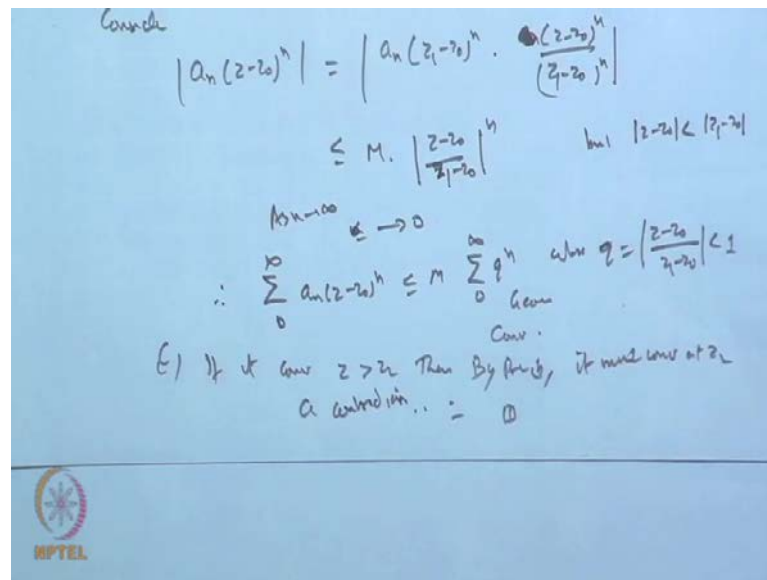 Consider
|a_n (z-z_0)^n| = |a_n (z_1-z_0)^n . (z-z_0)^n / (z_1-z_0)^n|
≤ M. |z-z_0 / z_1-z_0|^n but |z-z_0| < |z_1-z_0|
As n→∞ → 0
∴ ∑_0^∞ a_n (z-z_0)^n ≤ M ∑_0^∞ q^n where q = |z-z_0 / z_1-z_0| < 1
Geom
Conv.
If it conv z > z_2 Then By it must conv at z_2
a
NPTEL